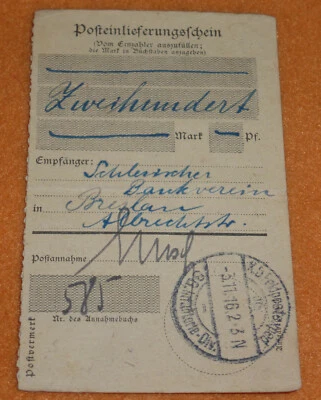 Posteinlieferungsschein
(Vom Einzahler auszufüllen;
die Mark in Buchstaben anzugeben)
Zweihundert
Mark — Pf.
Empfänger: Schlesischer
Bankverein
in Breslau
Albrechtstr.
Postannahme
585
Nr. des Annahmebuchs
Postvermerk
-3.11.16.2-3N